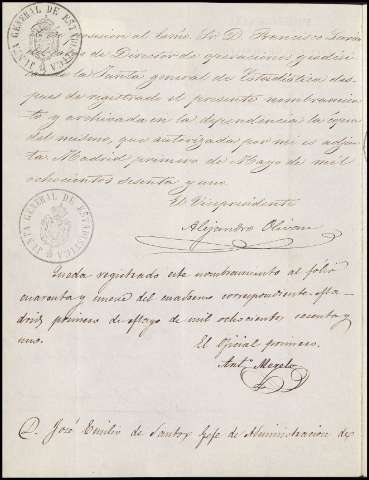 JUNTA GENERAL DE ESTADISTICA
posesion al Ilmo. Sr. D. Francisco
de Director de operaciones
de la Junta general de Estadística des-
pues de registrado el presente nombramien-
to y archivada en la dependencia la copia
del mismo, que autorizada por mi es adjun-
ta. Madrid primero de Mayo de mil
ochocientos sesenta y uno.
El Vicepresidente
Alejandro Olivan
JUNTA GENERAL DE ESTADISTICA
Queda registrado este nombramiento al folio
cuarenta y nueve del cuaderno correspondiente. Ma-
drid, primero de Mayo de mil ochocientos sesenta y
uno.
El Oficial primero.
Antº. Merelo
D. José Emilio de Santos Gefe de Administracion de